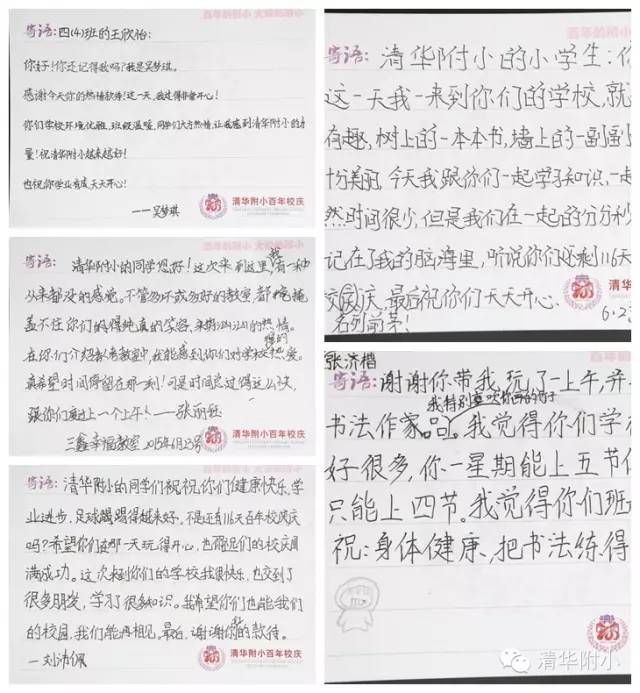 寄语：四(4)班的王欣怡：
你好！你还记得我吗？我是吴梦琪。
感谢今天你的热情款待！这一天，我过得非常开心！
你们学校环境优雅，班级温暖，同学们大方热情，让我感到清华附小的力
量！祝清华附小越来越好！
也祝你学业有成天天开心！
——吴梦琪
清华附小百年校庆
寄语：清华附小的同学您好！这次来到这里我有一种
从来都没的感觉。不管多坏或多好的教室，都掩
盖不住你们的纯真的笑容，热情。
在你们介绍教室中，我能感到你们对学校的热爱。
真希望时间停留在那一刻！可是时间总过得这么快，
跟你们过上一个上午！——张丽钰
三鑫幸福教室 2015年6月23号
清华附小百年校庆
寄语：清华附小的同学们祝祝你们健康快乐，学
业进步，足球踢踢得越来好。不是还有116天百年校庆
吗？希望你们在那一天玩得开心，也祝你们的校庆圆
满成功。这次来到你们的学校我很快乐，也交到了
很多朋友，学习了很多知识。我希望你们也能我们
的校园，我们能再相见。最后，谢谢你们的款待。
—刘沛佩
清华附小百年校庆
百年附小
寄语：清华附小的小学生：你
这一天我一来到你们的学校，就
有趣，树上的一本本书，墙上的一副副
十分美丽，今天我跟你们一起学习知识，一起
然时间很少，但是我们在一起的分分秒
记在了我的脑海里，听说你们还剩116天
校庆，最后祝你们天天开心、
名列前茅！
清华
6.23
张济楷
寄语：谢谢你带我玩了一上午，并
我特别喜欢你画的竹子
书法作家品。我觉得你们学校
好很多，你一星期能上五节
只能上四节。我觉得你们班
祝：身体健康、把书法练得
清华附小